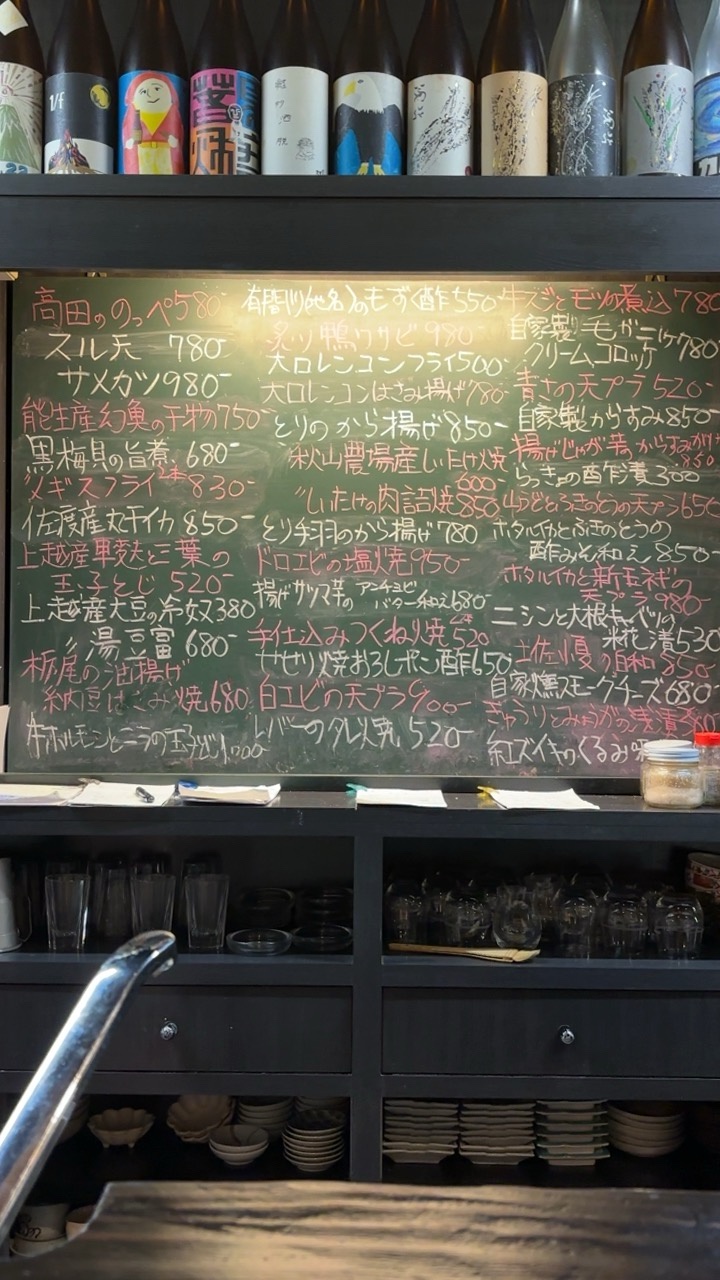 高田ののっぺ580-
スル天 780-
サメカツ980-
能生産幻魚の干物750-
黒梅貝の旨煮 680-
メギスフライ2本830-
佐渡産丸干イカ850-
上越産車麸と三葉の
玉子とじ 520-
上越産大豆の冷奴380
〃湯豆富 680-
栃尾の油揚げ
納豆はさみ焼680
牛ホルモンとニラの玉子とじ1,000-
有間川(地名)のもずく酢550-
炙り鴨ワサビ980-
大口レンコンフライ500-
大口レンコンはさみ揚げ780-
とりのから揚げ850-
秋山農場産しいたけ焼
600-
〃しいたけの肉詰焼850
とり手羽のから揚げ780
ドロエビの塩焼950-
揚げサツマ芋の アンチョビバター和え680-
手仕込みつくね焼2本520
せせり焼おろしポン酢650
白エビの天プラ900-
レバーのタレ焼 520-
牛スジとモツの煮込780
自家製 毛ガニ
クリームコロッケ780-
青さの天プラ520-
自家製からすみ850-
揚げじゃが芋
850-
らっきょの酢漬300
山うどとふきのとうの天プラ650
ホタルイカとふきのとうの
酢みそ和え850-
ホタルイカと新玉ネギの
天プラ980-
ニシンと大根キャベツの
糀漬530
自家燻スモークチーズ680-
きゅうりとみょうがの浅漬
紅ズイキのくるみ